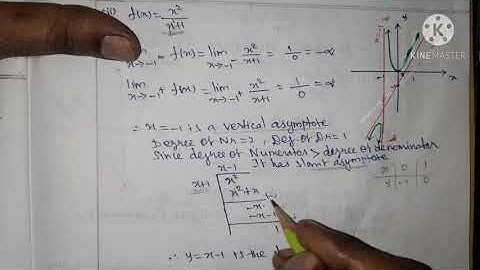 f(x) = x²/x+1
lim x→-1⁻ f(x) = lim x→-1⁻ x²/x+1 = 1/0 = -∞
lim x→-1⁺ f(x) = lim x→-1⁺ x²/x+1 = 1/0 = ∞
∴ x = -1 is a vertical asymptote
Degree of Nr = 2, Deg. of Dr = 1
Since degree of Numerator > degree of denominator
It has slant asymptote
x-1
x+1 x²
x²+x
-x
-x-1
1
∴ y = x-1 is the
x 0 1
y -1 0
y
x
K
KINEMASTER